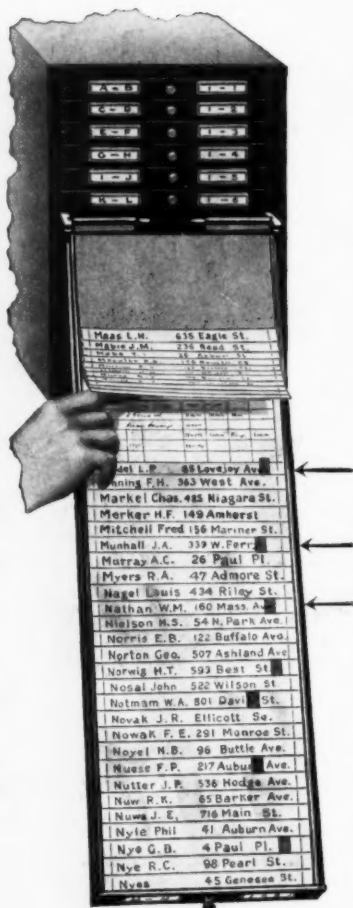 A-B 1-1
C-D 1-2
E-F 1-3
G-H 1-4
I-J 1-5
K-L 1-6
Maas L.H. 635 Eagle St.
Mabie J.M. 236 Bead St.
L.P. 88 Lovejoy Ave
nning F.H. 363 West Ave.
Markel Chas. 485 Niagara St.
Merker H.F. 149 Amherst
Mitchell Fred 156 Mariner St.
Munhall J.A. 339 W. Ferry
Murray A.C. 26 Paul Pl.
Myers R.A. 47 Admore St.
Nagel Louis 434 Riley St.
Nathan W.M. 160 Mass. Ave
Nielson H.S. 54 N. Park Ave.
Norris E.B. 122 Buffalo Ave.
Norton Geo. 507 Ashland Ave
Norwig H.T. 593 Best St.
Nosal John 522 Wilson St.
Notmam W.A. 801 Davi St.
Novak J.R. Ellicott Sq.
Nowak F.E. 291 Monroe St.
Noyel N.B. 96 Buttle Ave.
Nuese F.P. 217 Aubu Ave.
Nutter J.P. 536 Hodge Ave.
Nuw R.K. 65 Barker Ave.
Nuwa J.E. 716 Main St.
Nyle Phil 41 Auburn Ave.
Nye G.B. 4 Paul Pl.
Nye R.C. 98 Pearl St.
Nyes 45 Genesee St.